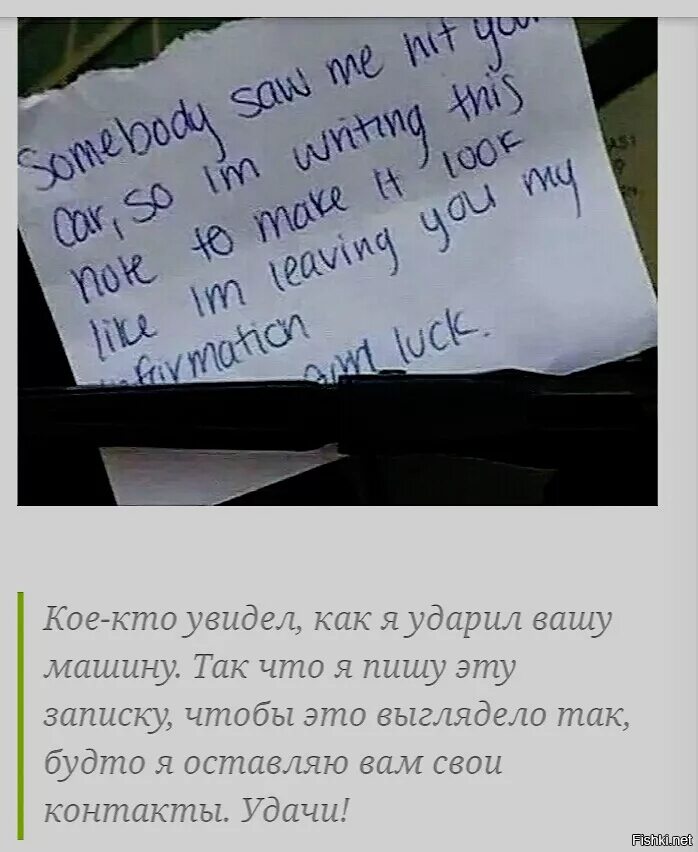 Somebody saw me hit you
car, so Im writing this
note to make it look
like Im leaving you my
information
luck.
Кое-кто увидел, как я ударил вашу
машину. Так что я пишу эту
записку, чтобы это выглядело так,
будто я оставляю вам свои
контакты. Удачи!
Fishki.net